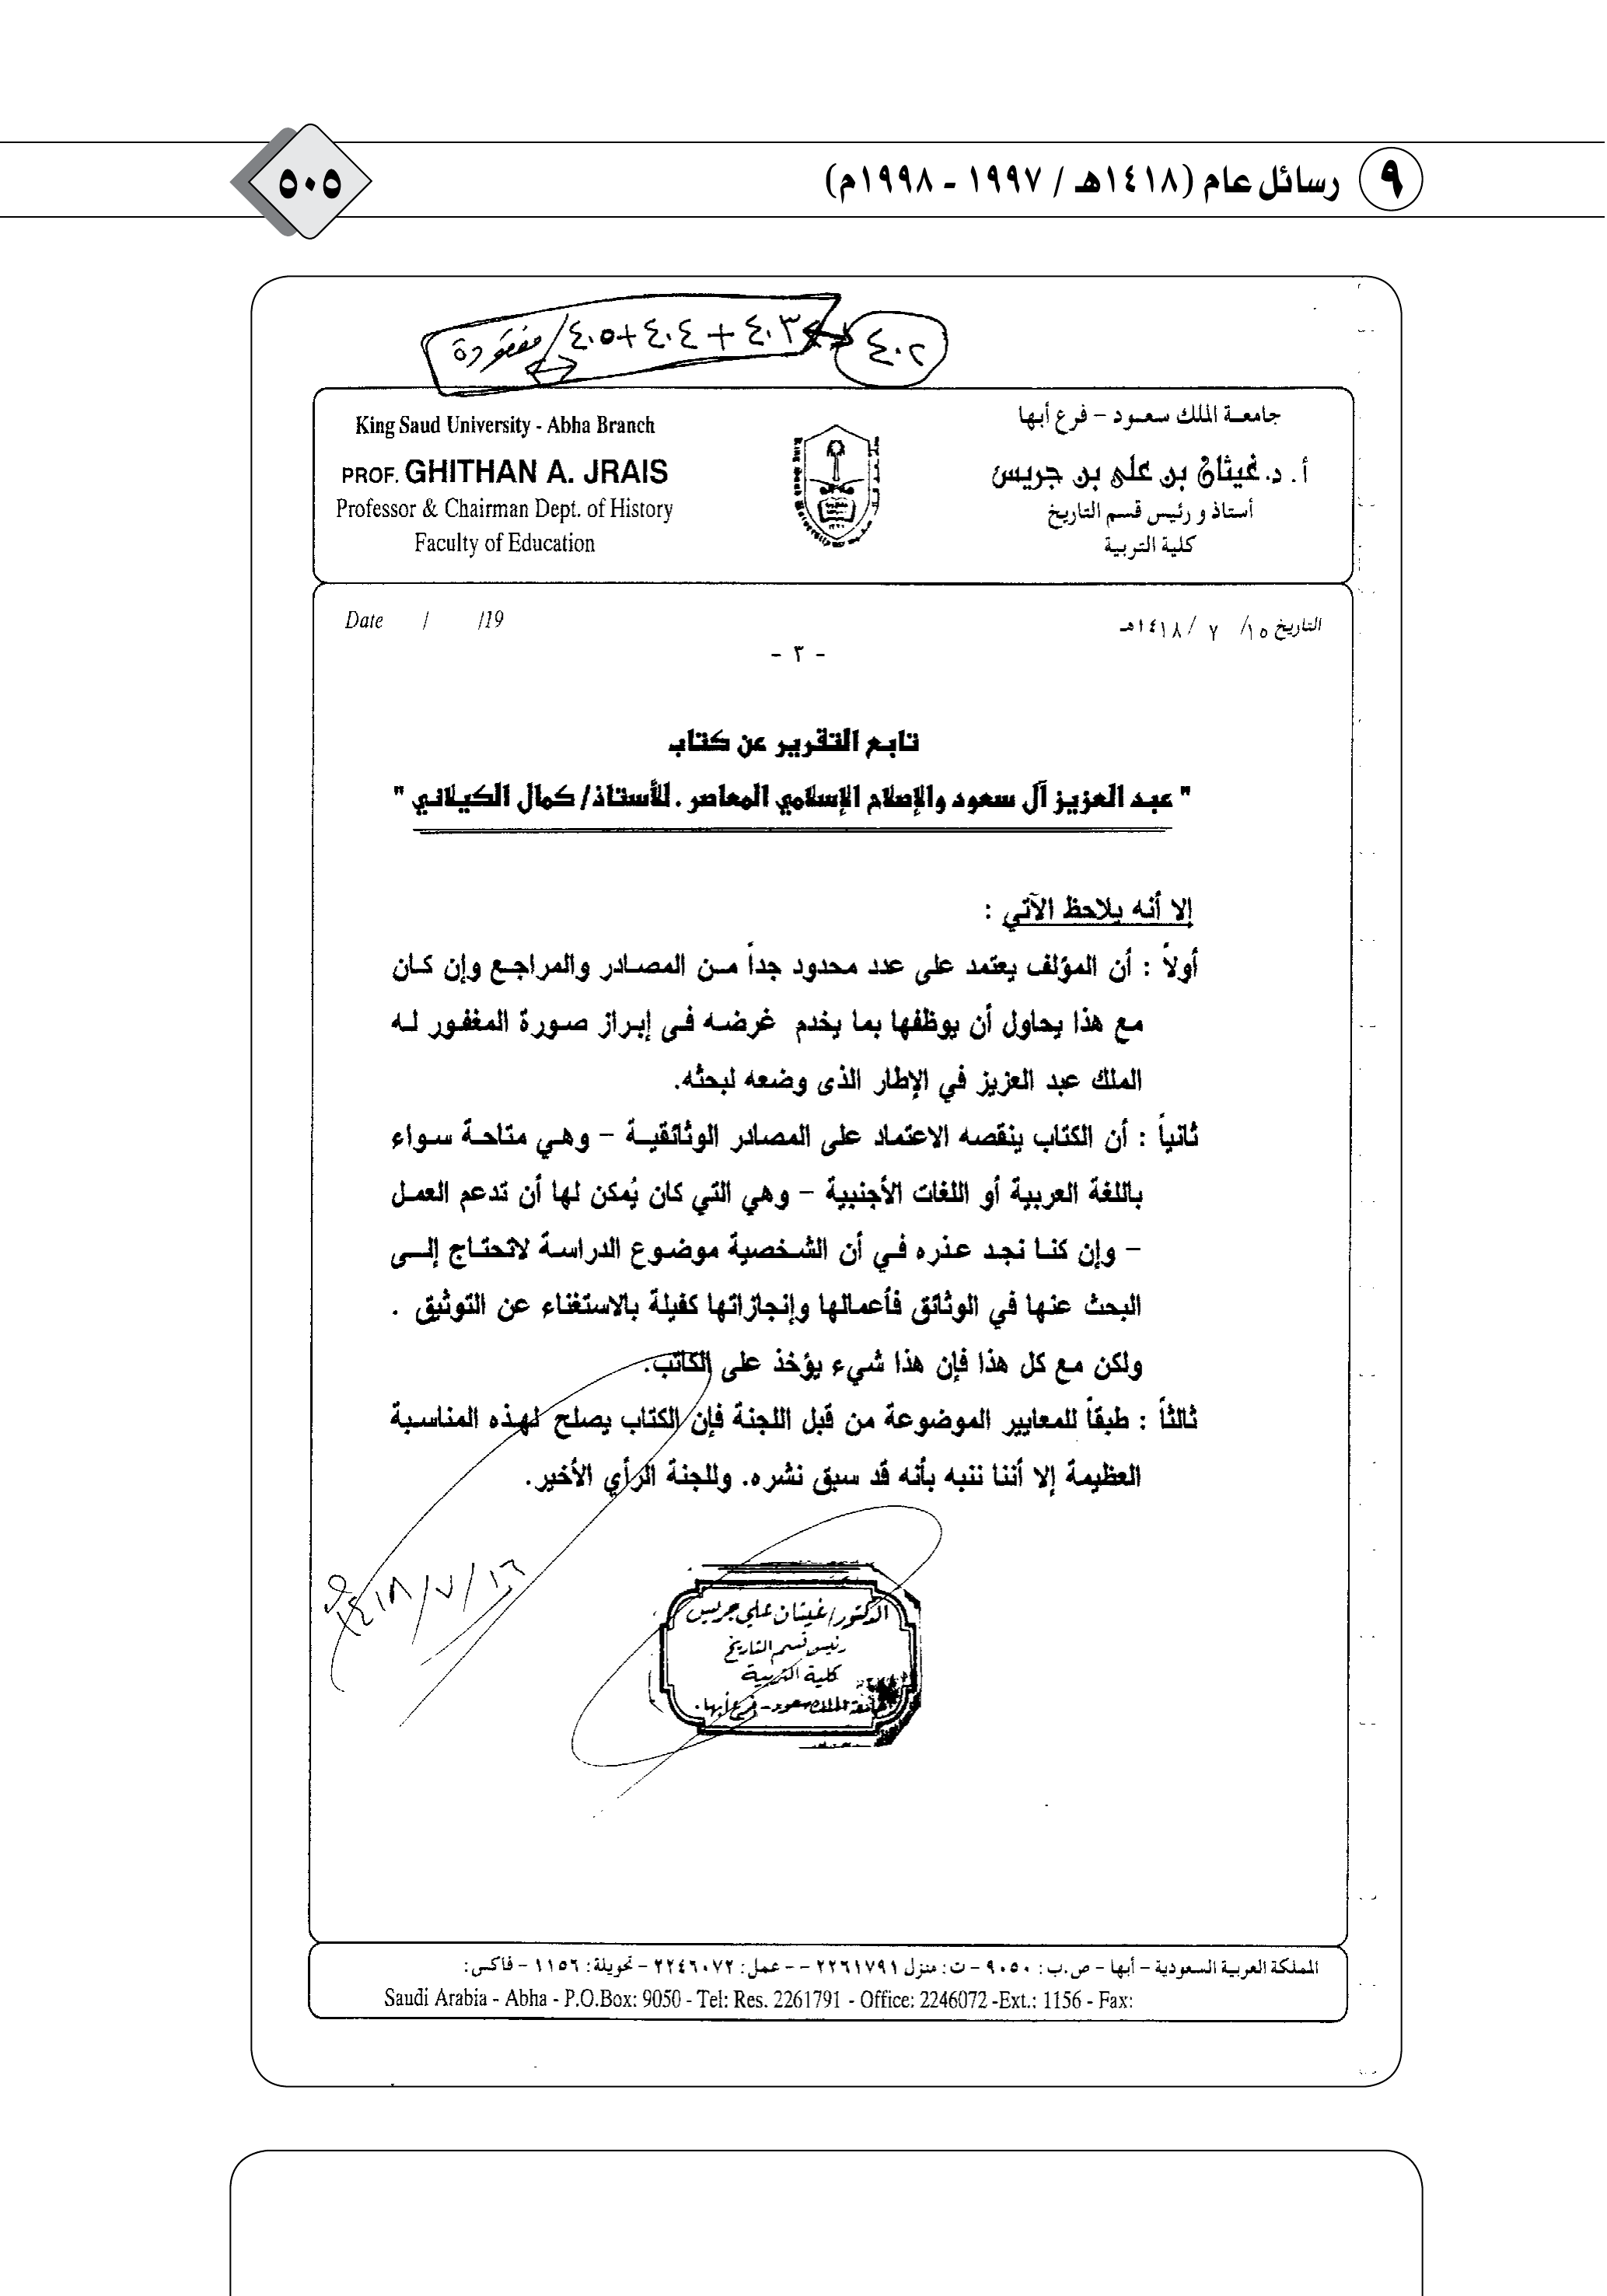 ٩ رسائل عام (١٤١٨هـ / ١٩٩٧ - ١٩٩٨م)
٥٠٥
٤٠٢
٤٠٣ + ٤٠٤ + ٤٠٥ / مفقودة
جامعة الملك سعود - فرع أبها
أ. د. غيثان بن على بن جريس
أستاذ و رئيس قسم التاريخ
كلية التربية
King Saud University - Abha Branch
PROF. GHITHAN A. JRAIS
Professor & Chairman Dept. of History
Faculty of Education
التاريخ ١٥/ ٧ /١٤١٨هـ
Date / /19
- ٣ -
تابع التقرير عن كتاب
" عبد العزيز آل سعود والإصلاح الإسلامي المعاصر . للأستاذ/ كمال الكيلاني "
إلا أنه يلاحظ الآتي :
أولاً : أن المؤلف يعتمد على عدد محدود جداً من المصادر والمراجع وإن كان
مع هذا يحاول أن يوظفها بما يخدم غرضه فى إبراز صورة المغفور له
الملك عبد العزيز في الإطار الذى وضعه لبحثه.
ثانياً : أن الكتاب ينقصه الاعتماد على المصادر الوثائقية - وهي متاحة سواء
باللغة العربية أو اللغات الأجنبية - وهي التي كان يُمكن لها أن تدعم العمل
- وإن كنا نجد عذره في أن الشخصية موضوع الدراسة لاتحتاج إلى
البحث عنها في الوثائق فأعمالها وإنجازاتها كفيلة بالاستغناء عن التوثيق .
ولكن مع كل هذا فإن هذا شيء يؤخذ على الكاتب.
ثالثاً : طبقاً للمعايير الموضوعة من قبل اللجنة فإن الكتاب يصلح لهذه المناسبة
العظيمة إلا أننا ننبه بأنه قد سبق نشره. وللجنة الرأي الأخير.
١٦/٧/١٤١٨هـ
الدكتور/غيثان علي جريس
رئيس قسم التاريخ
كلية التربية
جامعة الملك سعود - فرع أبها.
المملكة العربية السعودية - أبها - ص.ب : ٩٠٥٠ - ت: منزل ٢٢٦١٧٩١ - - عمل: ٢٢٤٦٠٧٢ - تحويلة: ١١٥٦ - فاكس:
Saudi Arabia - Abha - P.O.Box: 9050 - Tel: Res. 2261791 - Office: 2246072 -Ext.: 1156 - Fax: